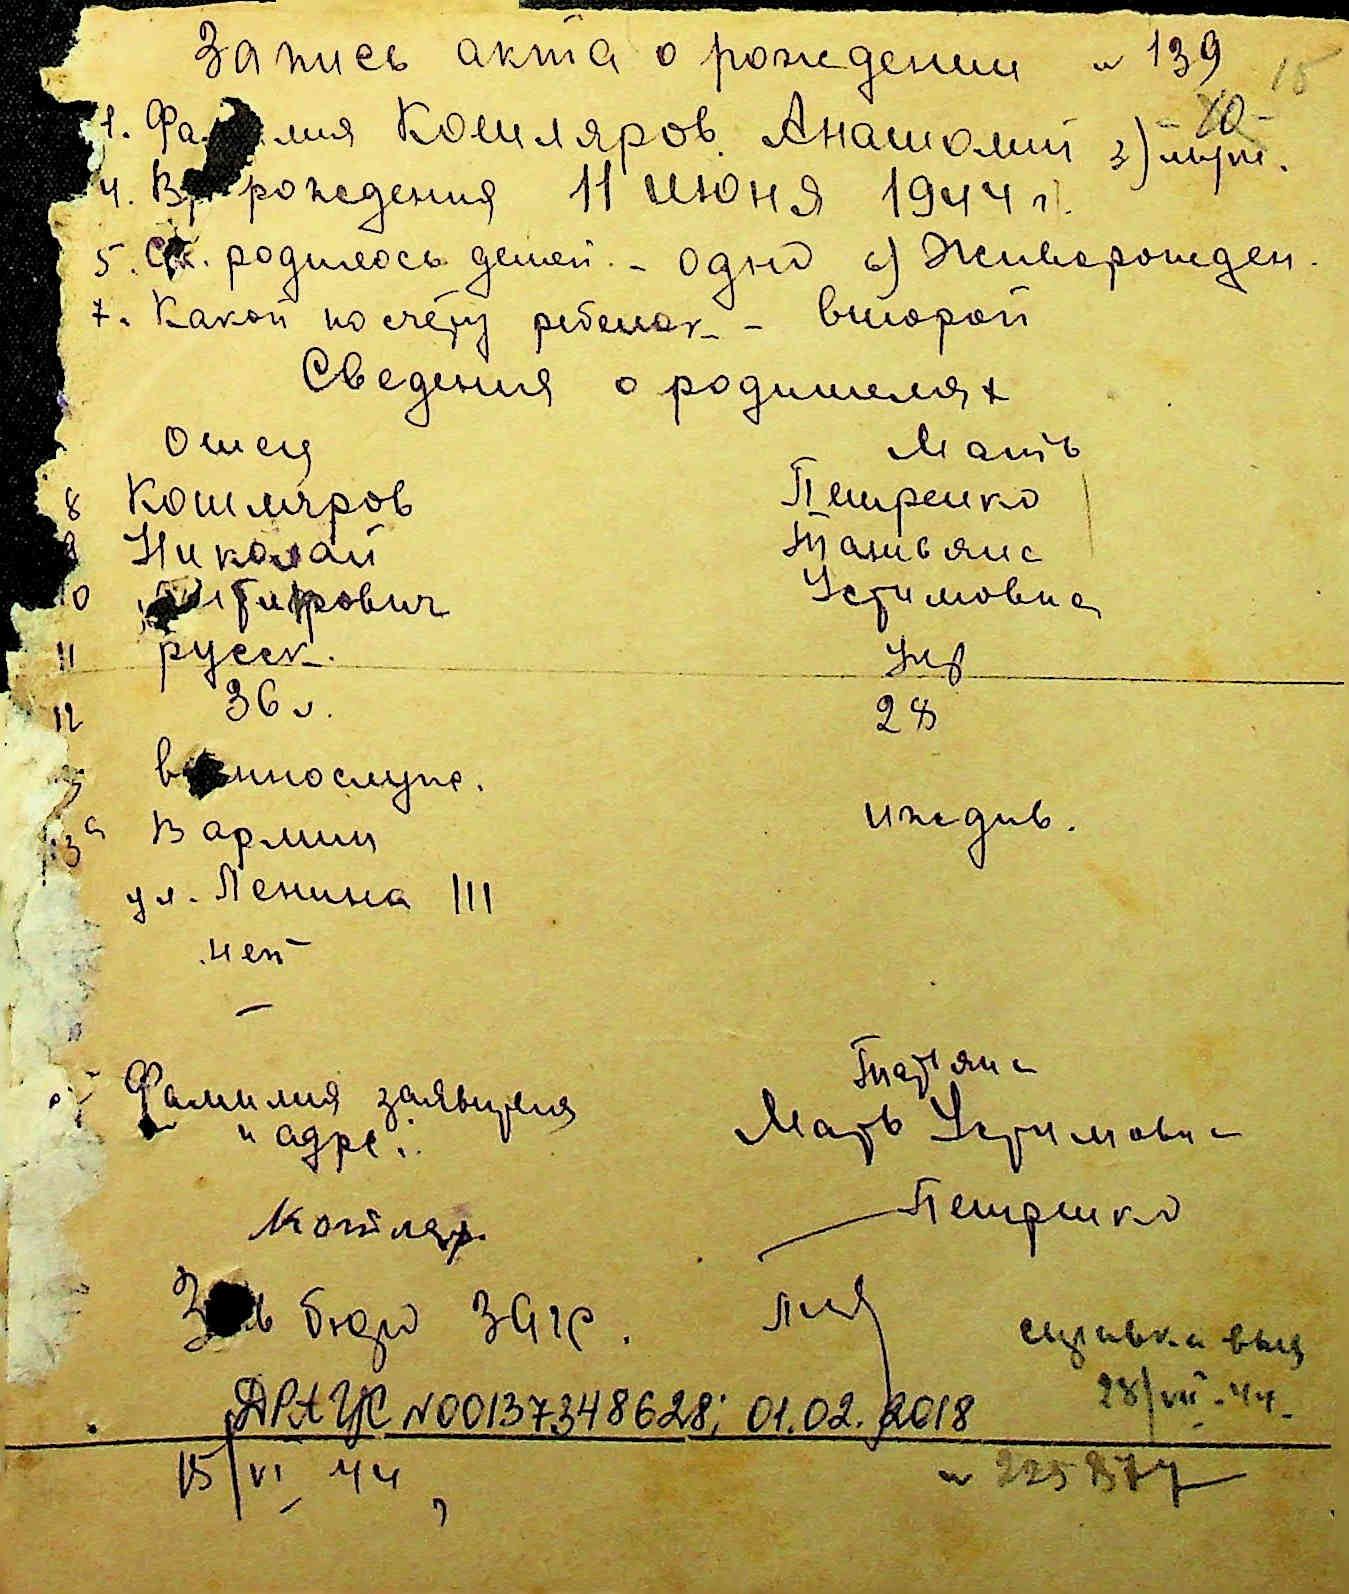 Запись акта о рождении № 139
15
1. Фамилия Котляров Анатолий 3) муж.
-10-
4. Вр. рождения 11 июня 1944 г.
5. Ск. родилось детей - одно 6) Живорожден.
7. Какой по счёту ребенок - второй
Сведения о родителях
Отец Мать
8 Котляров Петренко
9 Николай Татьяна
10 Устимовна
11 русск. укр
12 36 л. 28
военнослуж.
13а В армии иждив.
ул. Ленина 111
нет
–
Татьяна
Фамилия заявителя Мать Устимовна
и адрес.
Котляр. Петренко
Зав бюро ЗАГС. справка выд
28/VII-44.
ДРАЦС №00137348628; 01.02.2018
15/VI 44 № 225877